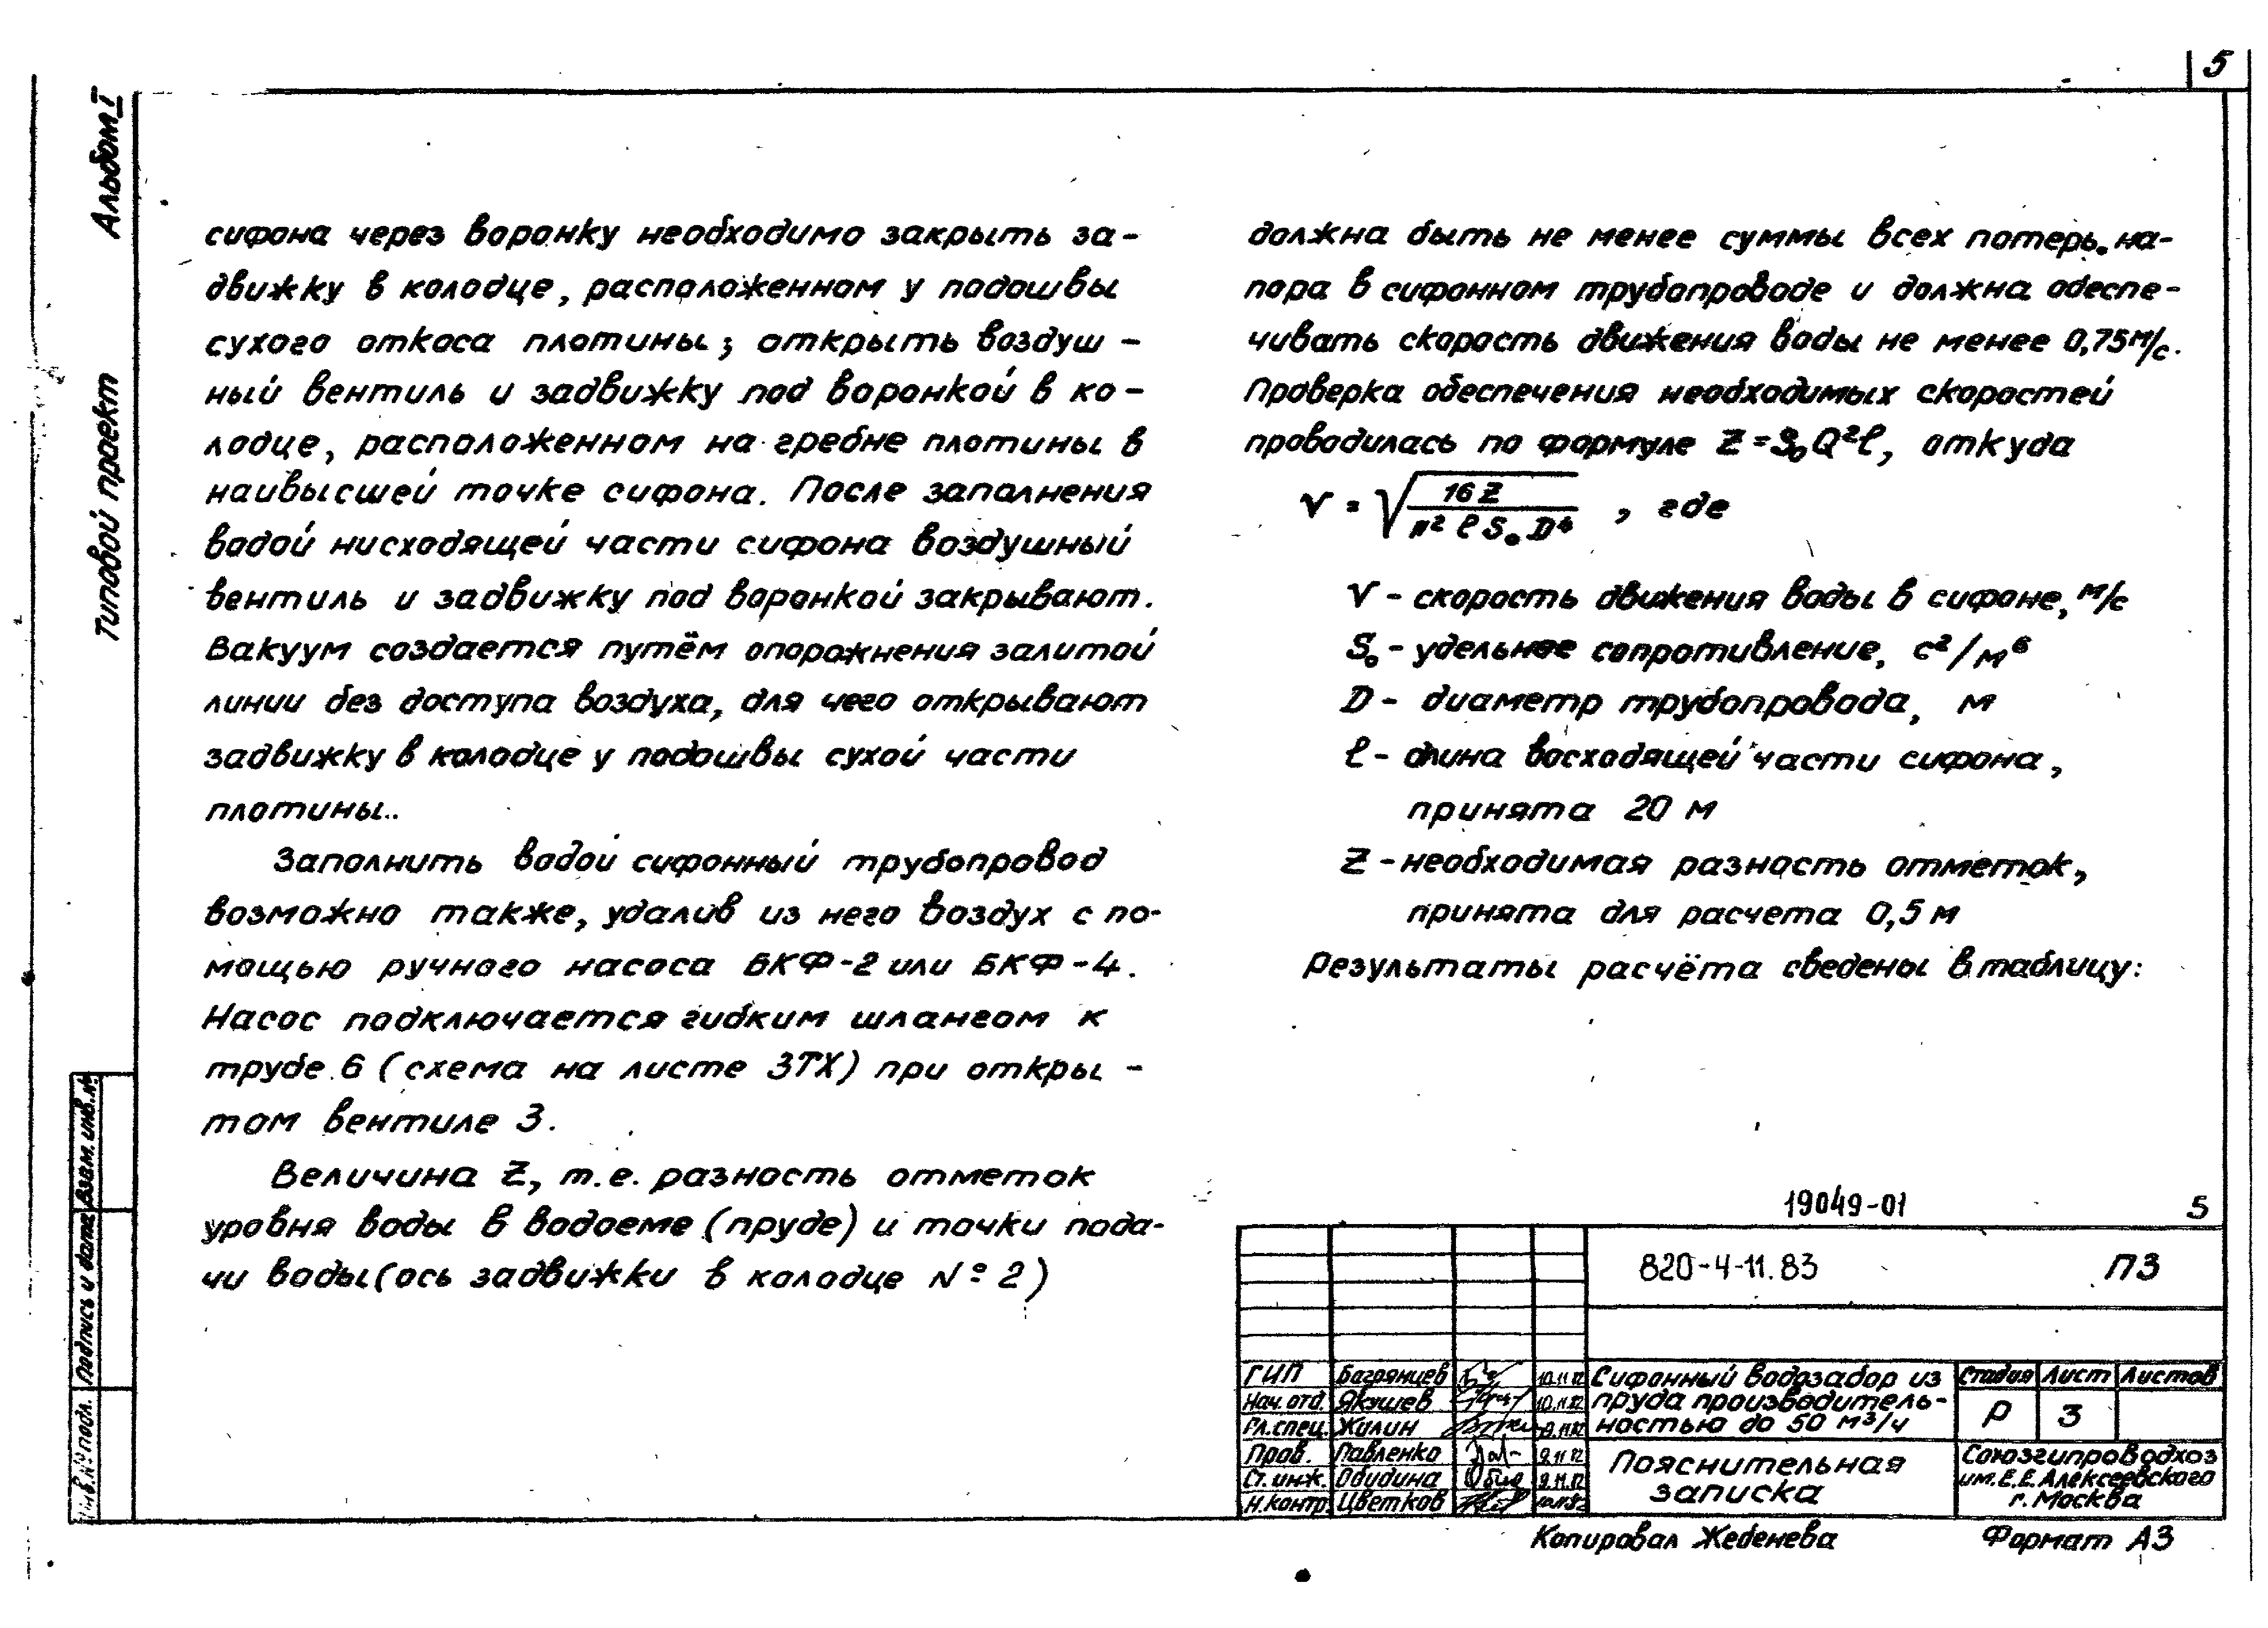 5
Альбом I
Типовой проект
сифона через воронку необходимо закрыть за-
движку в колодце, расположенном у подошвы
сухого откоса плотины; открыть воздуш-
ный вентиль и задвижку под воронкой в ко-
лодце, расположенном на гребне плотины в
наивысшей точке сифона. После заполнения
водой нисходящей части сифона воздушный
вентиль и задвижку под воронкой закрывают.
Вакуум создается путём опорожнения залитой
линии без доступа воздуха, для чего открывают
задвижку в колодце у подошвы сухой части
плотины..
Заполнить водой сифонный трубопровод
возможно также, удалив из него воздух с по-
мощью ручного насоса БКФ-2 или БКФ-4.
Насос подключается гибким шлангом к
трубе 6 (схема на листе 3ТХ) при откры-
том вентиле 3.
Величина Z, т.е. разность отметок
уровня воды в водоеме (пруде) и точки пода-
чи воды (ось задвижки в колодце №2)
должна быть не менее суммы всех потерь на-
пора в сифонном трубопроводе и должна обеспе-
чивать скорость движения воды не менее 0,75 м/с.
Проверка обеспечения необходимых скоростей
проводилась по формуле Z = S₀Q²ℓ, откуда
V = √(16 Z / π² ℓ S₀ D⁴) , где
V - скорость движения воды в сифоне, м/с
S₀ - удельное сопротивление, с²/м⁶
D - диаметр трубопровода, м
ℓ - длина восходящей части сифона,
принята 20 м
Z - необходимая разность отметок,
принята для расчета 0,5 м
Результаты расчёта сведены в таблицу:
19049-01 5
820-4-11.83 ПЗ
ГИП Багрянцев 10.11.82
Нач. отд. Якушев 10.11.82
Гл. спец. Жилин 9.11.82
Пров. Павленко 9.11.82
Ст. инж. Обидина 9.11.82
Н. контр. Цветков
Сифонный водозабор из
пруда производитель-
ностью до 50 м³/ч
Стадия Лист Листов
Р 3
Пояснительная
записка
Союзгипроводхоз
им. Е.Е. Алексеевского
г. Москва
Копировал Жебенева Формат А3
Взам. инв. №
Подпись и дата
Инв. № подл.